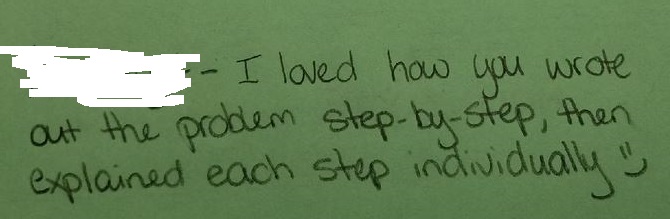 -- I loved how you wrote
out the problem step-by-step, then
explained each step individually